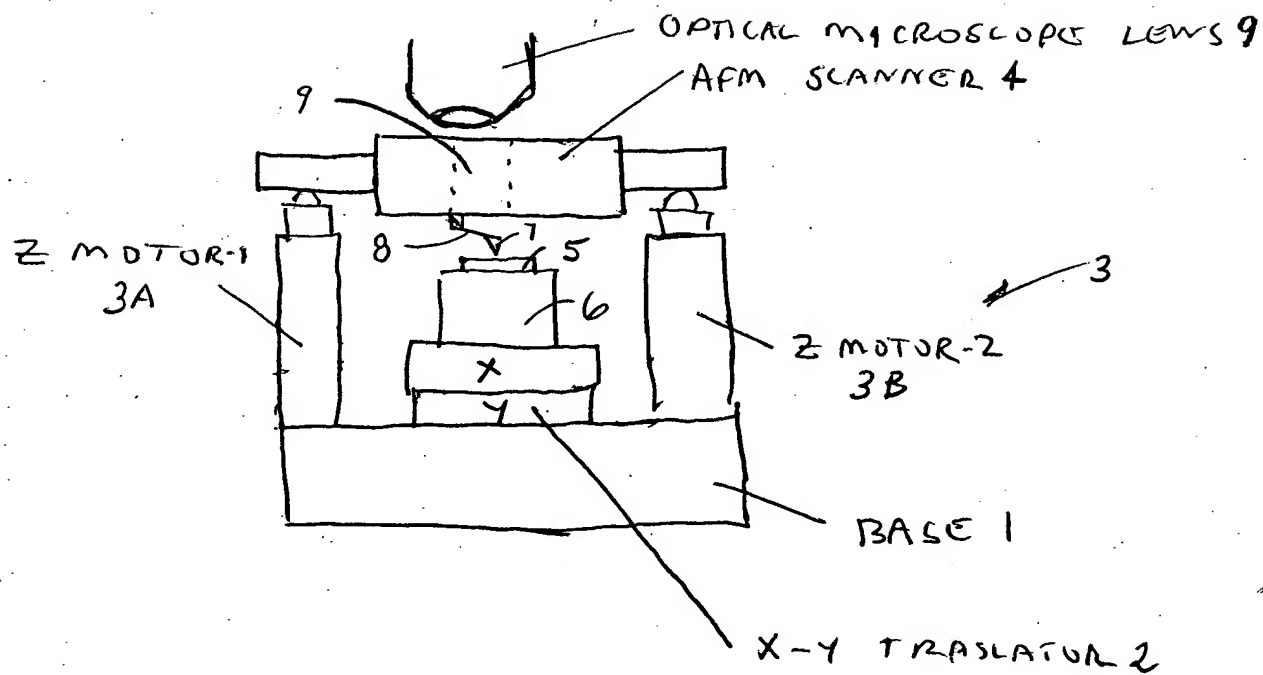 OPTICAL MICROSCOPE LENS 9
AFM SCANNER 4
9
9
8
7
5
Z MOTOR-1
3A
3
6
Z MOTOR-2
3B
X
Y
BASE 1
X-Y TRASLATOR 2